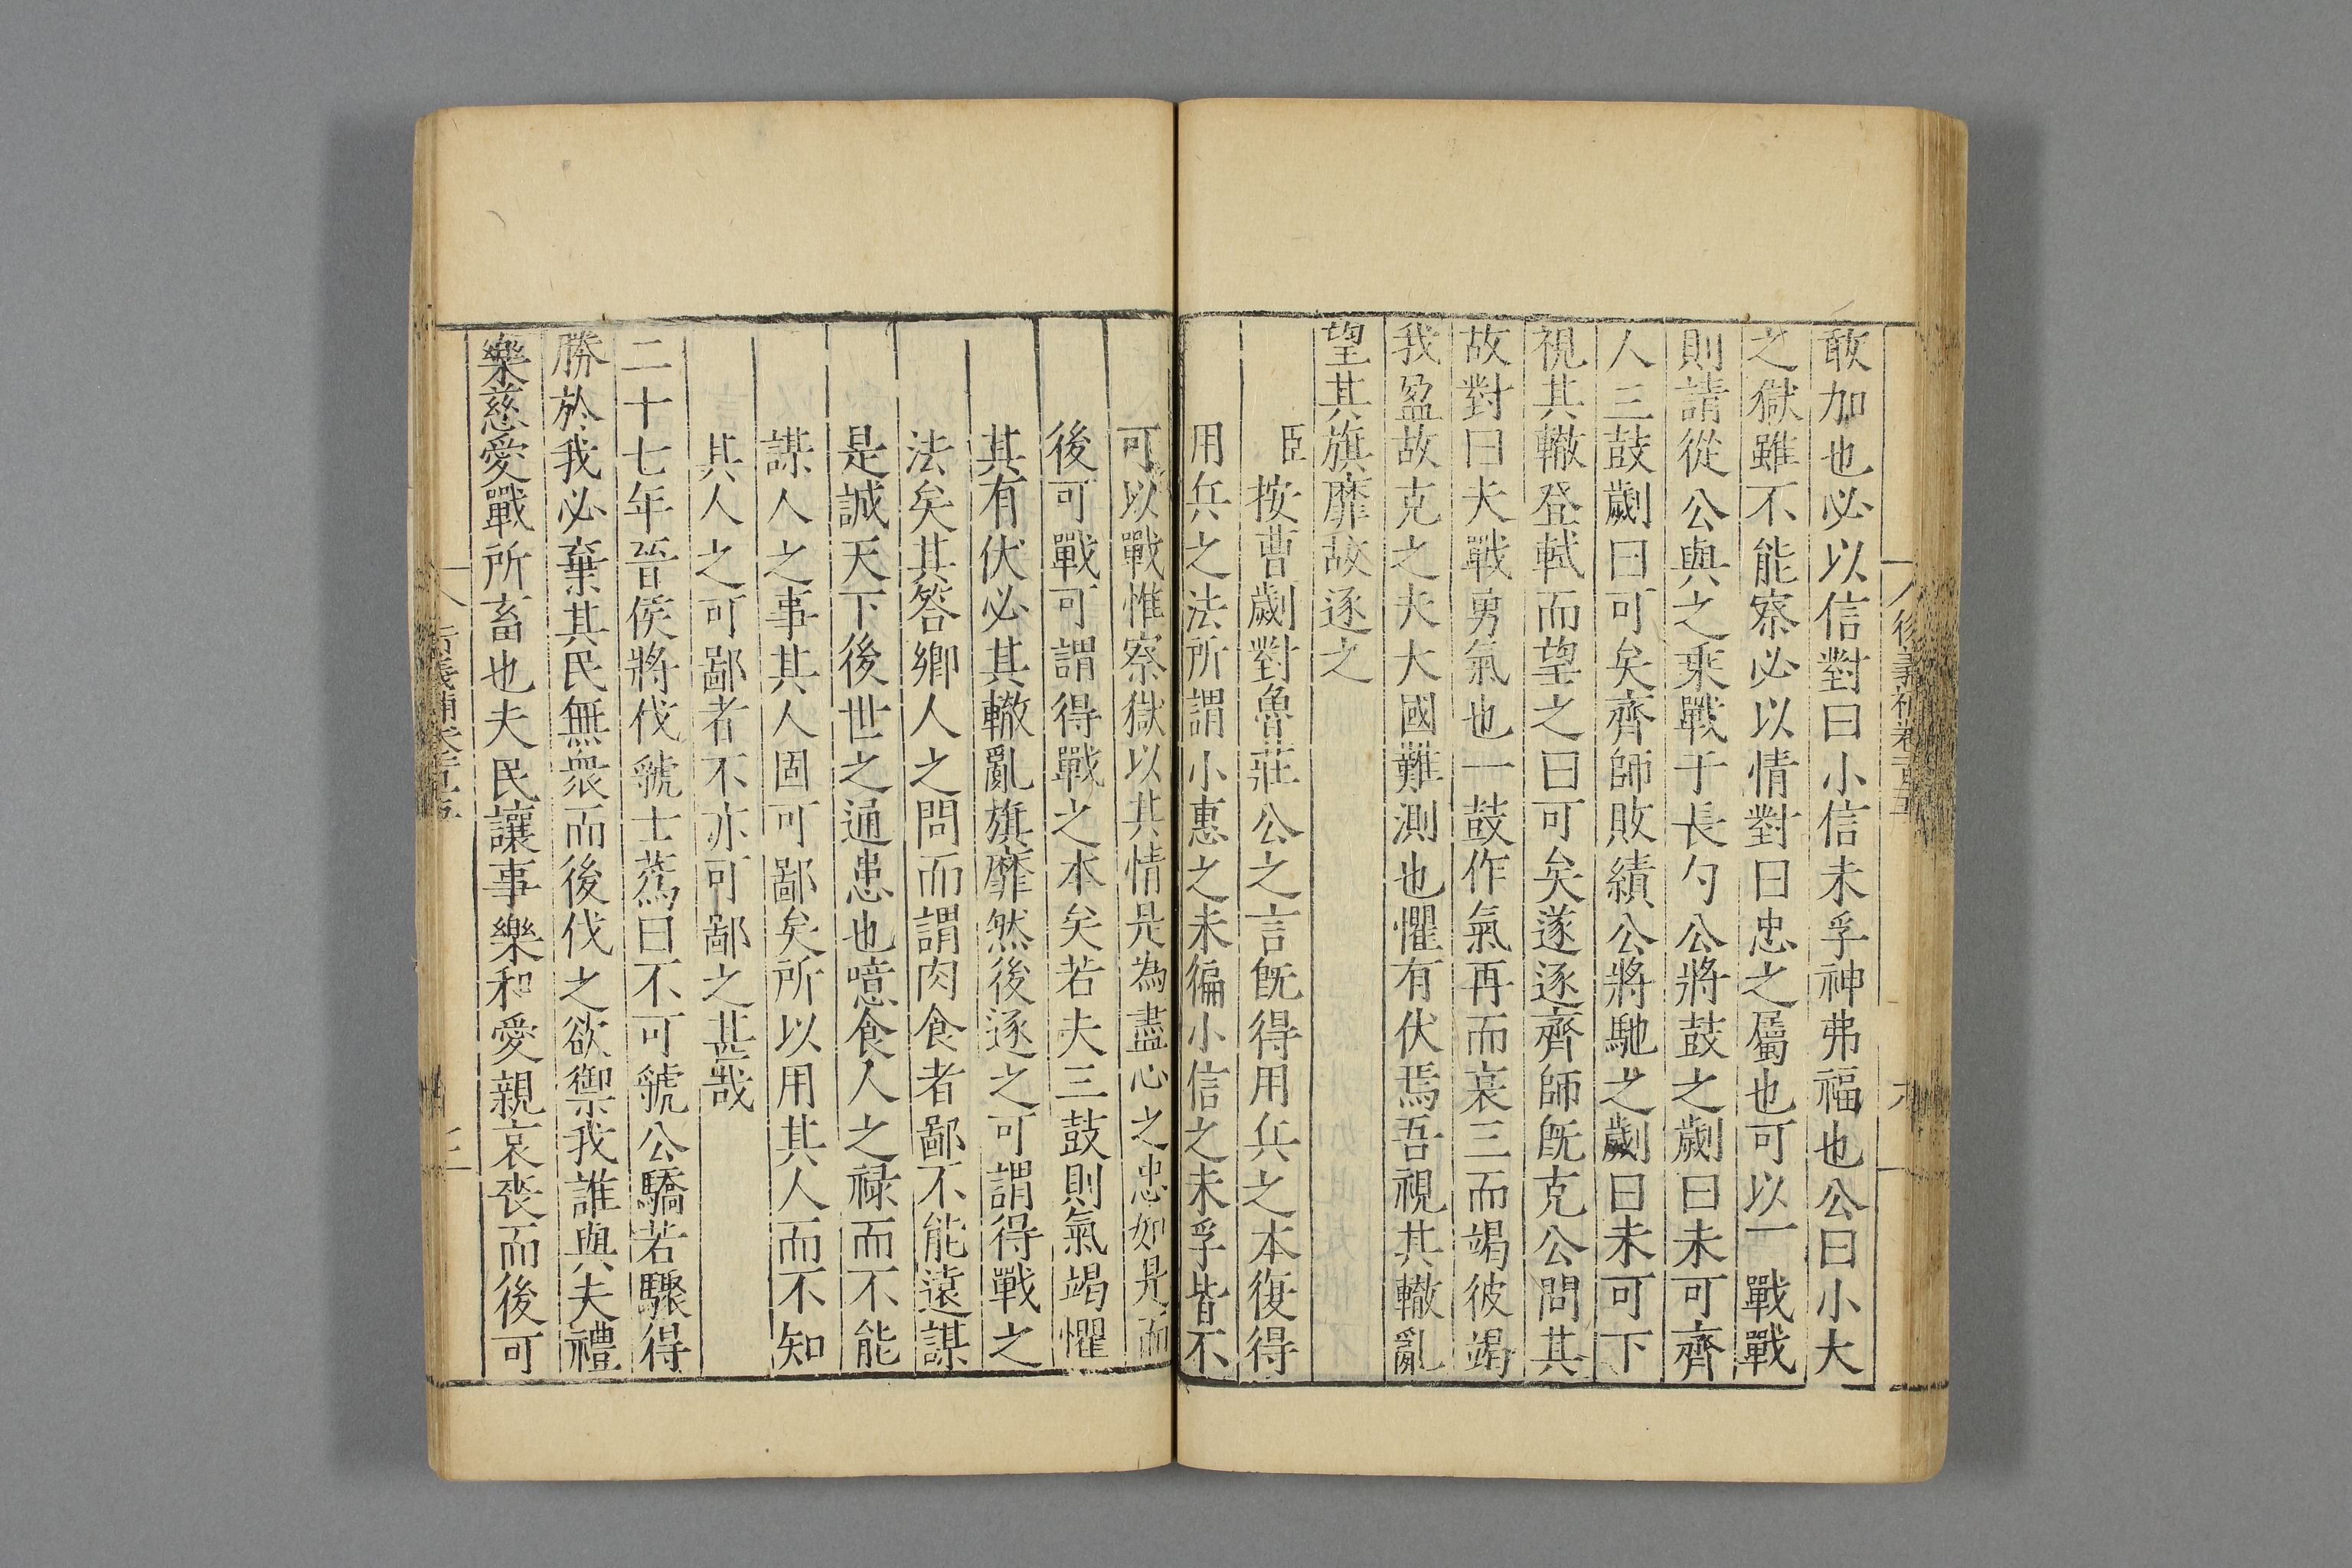 敢加也必以信對曰小信未孚神弗福也公曰小大
之獄雖不能察必以情對曰忠之屬也可以一戰戰
則請從公與之乘戰于長勺公將鼓之劌曰未可齊
人三鼓劌曰可矣齊師敗績公將馳之劌曰未可下
視其轍登軾而望之曰可矣遂逐齊師既克公問其
故對曰夫戰勇氣也一鼓作氣再而衰三而竭彼竭
我盈故克之夫大國難測也懼有伏焉吾視其轍亂
望其旗靡故逐之
臣按曹劌對魯莊公之言既得用兵之本復得
用兵之法所謂小惠之未徧小信之未孚皆不
可以戰惟察獄以其情是為盡心之忠如是而
後可戰可謂得戰之本矣若夫三鼓則氣竭懼
其有伏必其轍亂旗靡然後逐之可謂得戰之
法矣其答鄉人之問而謂肉食者鄙不能遠謀
是誠天下後世之通患也噫食人之祿而不能
謀人之事其人固可鄙矣所以用其人而不知
其人之可鄙者不亦可鄙之甚哉
二十七年晉侯將伐虢士蒍曰不可虢公驕若驟得
勝於我必棄其民無衆而後伐之欲禦我誰與夫禮
樂慈愛戰所畜也夫民讓事樂和愛親哀喪而後可